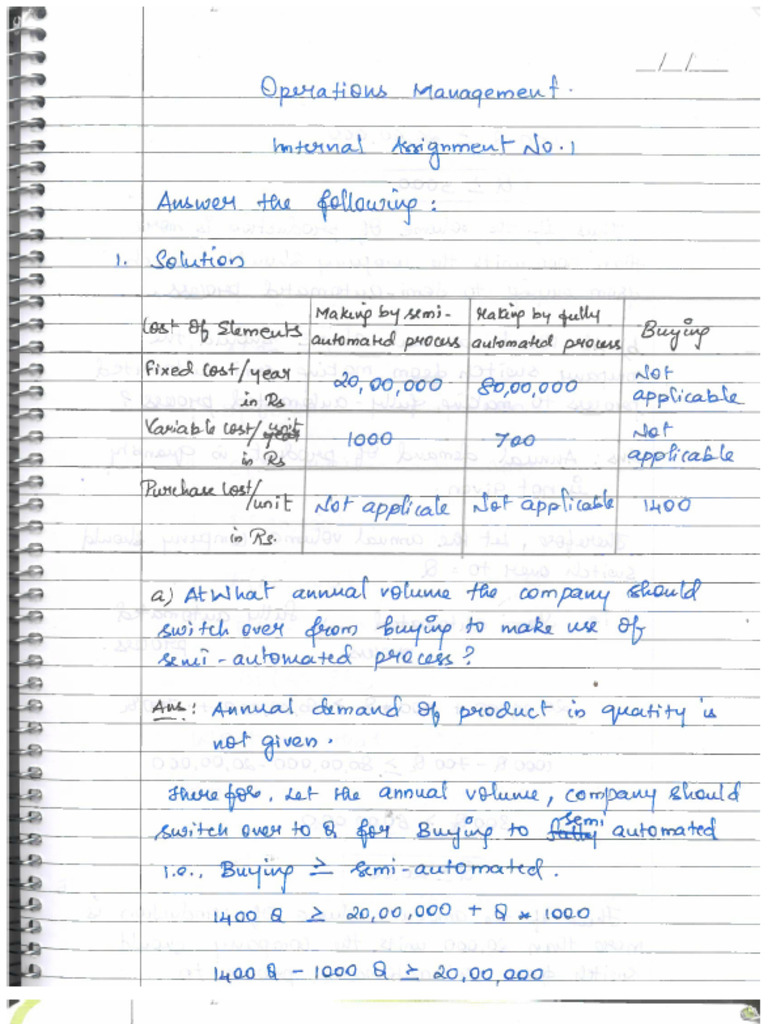 __/__/__
Operations Management.
Internal Assignment No. 1
Answer the following:
1. Solution
Cost Of Elements | Making by semi-automated process | Making by fully automated process | Buying
Fixed cost/year in Rs | 20,00,000 | 80,00,000 | Not applicable
Variable cost/unit in Rs | 1000 | 700 | Not applicable
Purchase cost/unit in Rs. | Not applicale | Not applicable | 1400
a) At What annual volume the company should
switch over from buying to make use of
semi-automated process?
Ans: Annual demand of product in quatity is
not given.
Therefore, Let the annual volume, company should
switch over to Q for Buying to semi automated
i.e., Buying ≥ semi-automated.
1400 Q ≥ 20,00,000 + Q * 1000
1400 Q - 1000 Q ≥ 20,00,000